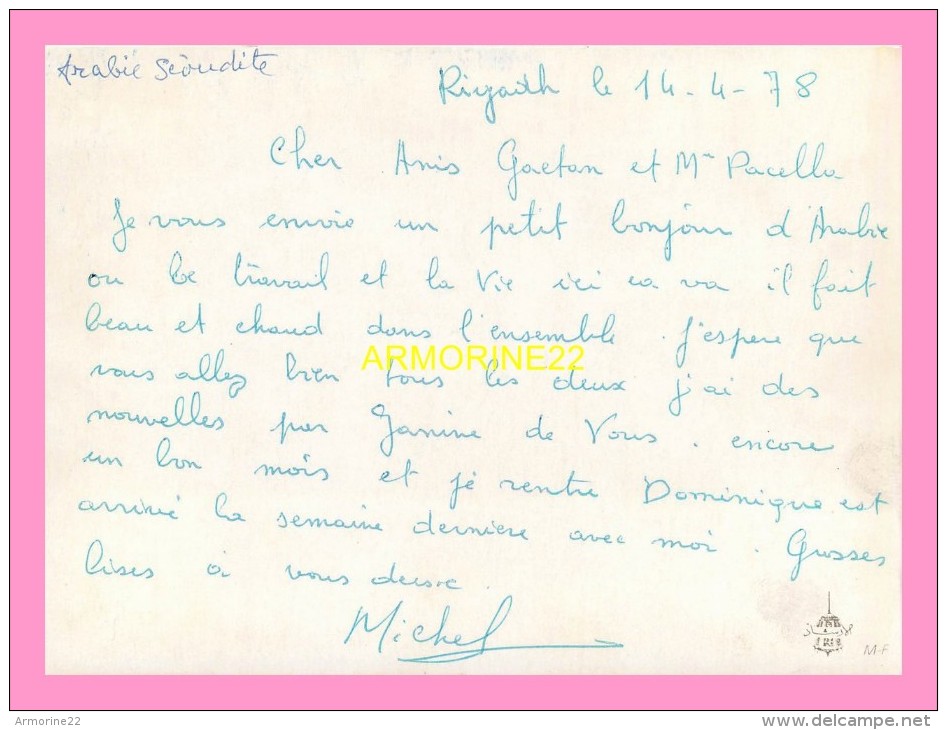 Arabie Séoudite
Riyadh le 14-4-78
Cher Amis Gaetan et Mme Pacella
Je vous envoie un petit bonjour d'Arabie
ou le travail et la vie ici ca va il fait
beau et chaud dans l'ensemble. j'espere que
ARMORINE22
vous allez bien tous les deux j'ai des
nouvelles par Janine de Vous. encore
un bon mois et je rentre Dominique est
arrivé la semaine derniere avec moi. Grosses
bises a vous deux.
Michel
M-F
Armorine22
www.delcampe.net